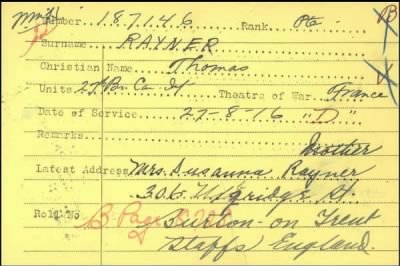 Number 187146 Rank Pte B
Surname RAYNER
Christian Name Thomas
Units 27th Bn. Ca. Theatre of War France
Date of Service 27-8-16 "D"
Remarks
Mother
Latest Address Mrs Susanna Rayner
306 St.
Roll No. B. Page Burton-on Trent
Staffs England.